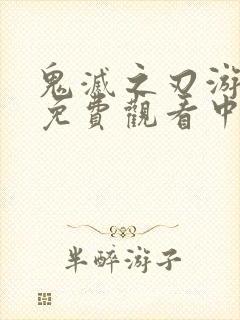 鬼滅之刃游
免費觀看中
半醉游子